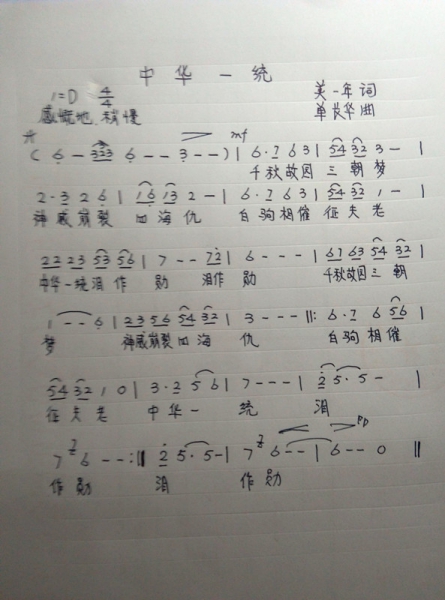 中华一统
1=D 4/4 美一年词
感慨地 稍慢 单长华曲
mf
( 6 - 323 6 - - 3 - - ) | 6·7 6 3 | 54 32 3 - |
千秋故国 三朝梦
2·3 2 6 | 16 13 2 - | 6·7 6 3 | 54 32 1 - |
神威崩裂 四海仇 白驹相催 征夫老
22 23 53 56 | 7 - - 72 | 6 - - - | 67 63 54 32 |
中华一统泪作 勋 泪作 勋 千秋故国三朝
1 - - 6 | 23 56 54 32 | 3 - - - ||: 6·7 6 56 |
梦 神威崩裂四海 仇 白驹相催
54 32 1 0 | 3·2 5 6 | 7 - - - | 2 5·5 - |
征夫老 中华一 统 泪
pp
7 7 6 - - :|| 2 5·5 - | 7 7 6 - - | 6 - - 0 ||
作勋 泪 作勋